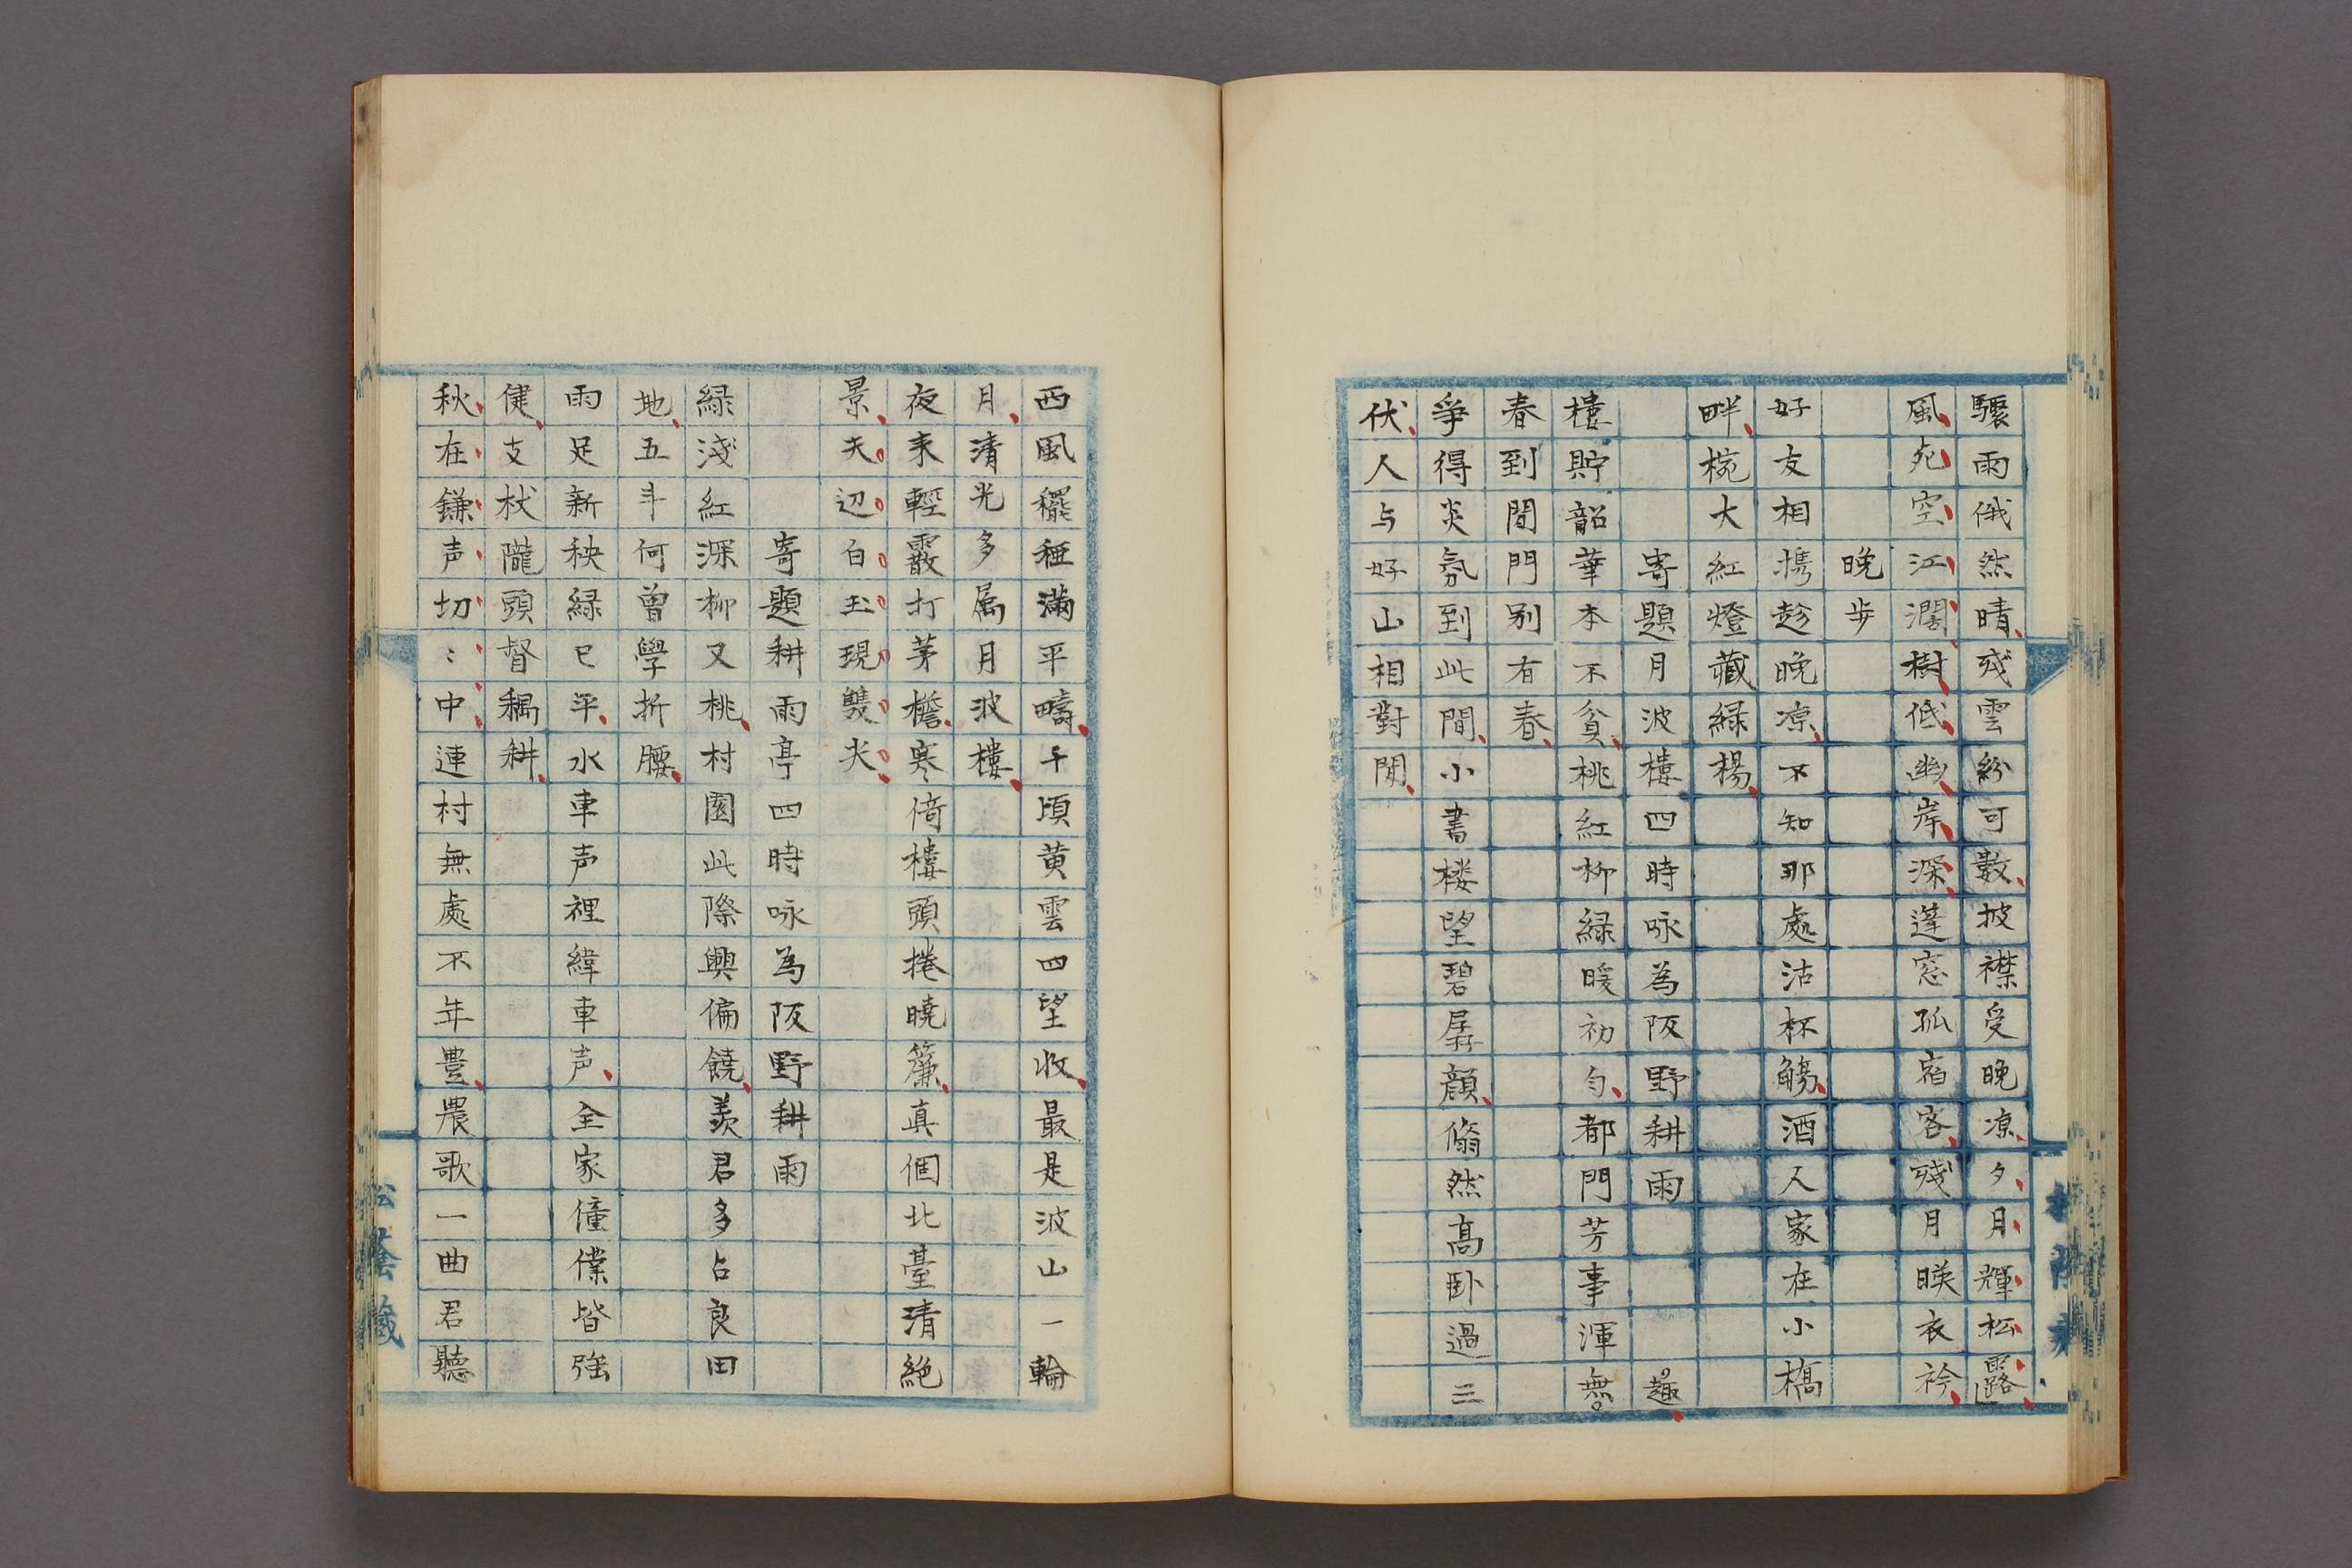 驟雨俄然晴残雲紛可數披襟受晚凉夕月輝松露
風死空江濶樹低幽岸深蓬窓孤宿客殘月暎衣衿
晚步
好友相携趁晚凉不知那處沽杯觴酒人家在小橋
畔椀大紅燈藏緑楊
寄題月波樓四時咏為阪野耕雨
樓貯韶華本不貧桃紅柳緑暖初勻都門芳事渾無趣
春到閒門别有春
爭得炎氛到此間小書楼望碧孱顔翛然高卧過三
伏人与好山相對閒
西風䆉稏滿平疇千頃黄雲四望收最是波山一輪
月清光多属月波樓
夜来輕霰打茅檐寒倚樓頭捲曉簾真個北臺清絶
景天辺白玉現雙尖
寄題耕雨亭四時咏為阪野耕雨
緑淺紅深柳又桃村園此際興偏饒羨君多占良田
地五斗何曽學折腰
雨足新秧緑已平水車声裡緯車声全家僮僕皆強
健支杖隴頭督耦耕
秋在鎌声切〻中連村無處不年豊農歌一曲君聽
松蔭藏